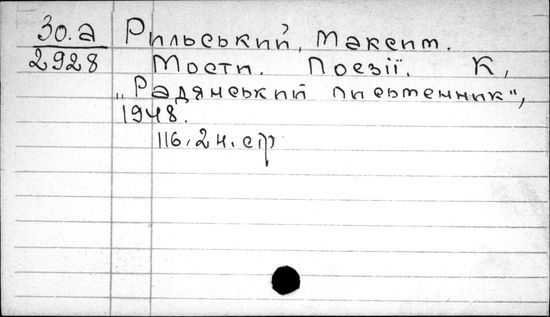 30.а Рильський, Максим.
2928 Мости. Поезії. К,
„Радянський письменник",
1948.
116, 2 н. стр